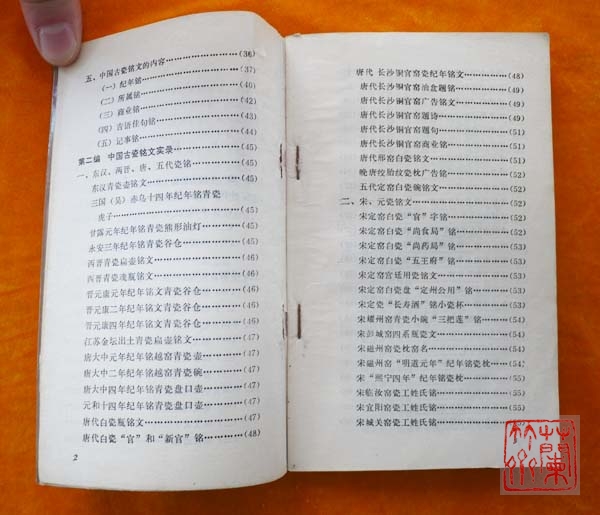 五、中国古瓷铭文的内容……………(36)
(一)纪年铭……………(37)
(二)所属铭……………(40)
(三)商业铭……………(42)
(四)吉语佳句铭……………(43)
(五)记事铭……………(44)
第二编 中国古瓷铭文实录……………(45)
一、东汉、两晋、唐、五代瓷铭……………(45)
东汉青瓷壶铭文……………(45)
三国(吴)赤乌十四年纪年铭青瓷
虎子……………(45)
甘露元年纪年铭青瓷熊形油灯……(45)
永安三年纪年铭青瓷谷仓……………(45)
西晋青瓷扁壶铭文……………(46)
西晋青瓷魂瓶铭文……………(46)
晋元康元年纪年铭文青瓷谷仓……(46)
晋元康二年纪年铭文青瓷谷仓……(46)
晋元康四年纪年铭文青瓷谷仓……(46)
江苏金坛出土青瓷扁壶铭文………(46)
唐大中元年纪年铭越窑青瓷壶……(47)
唐大中二年纪年铭越窑青瓷碗……(47)
唐大中四年纪年铭青瓷盘口壶……(47)
元和十四年纪年铭青瓷盘口壶……(47)
唐代白瓷瓶铭文……………(47)
唐代白瓷“官”和“新官”铭…………(48)
2
唐代 长沙铜官窑瓷纪年铭文…………(48)
唐代长沙铜官窑油盒题铭…………(49)
唐代长沙铜官窑广告铭文…………(49)
唐代长沙铜官窑题诗……………(49)
唐代长沙铜官窑题句……………(51)
唐代长沙铜官窑商业铭……………(51)
唐代邢窑白瓷铭文……………(52)
晚唐绞胎纹瓷枕广告铭……………(52)
五代定窑白瓷碗铭文……………(52)
二、宋、元瓷铭文……………(52)
宋定窑白瓷“官”字铭……………(52)
宋定窑白瓷“尚食局”铭……………(52)
宋定窑白瓷“尚药局”铭……………(53)
宋定窑白瓷“五王府”铭……………(53)
宋定窑宫廷用瓷铭文……………(53)
宋定窑白瓷盘“定州公用”铭………(53)
宋定瓷“长寿酒”铭小瓷杯…………(53)
宋耀州窑青瓷小碗“三把莲”铭……(54)
宋彭城窑四系瓶瓷文……………(54)
宋磁州窑瓷枕窑名……………(54)
宋磁州窑“明道元年”纪年铭瓷枕…(54)
宋“熙宁四年”纪年铭瓷枕…………(55)
宋临汝窑瓷工姓氏铭……………(55)
宋宜阳窑瓷工姓氏铭……………(55)
宋城关窑瓷工姓氏铭……………